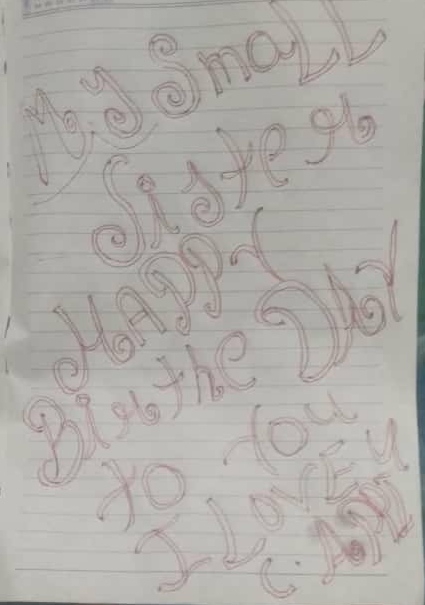 My Small
Sister
HAPPY
Birthe DAY
to you
I LOVE y